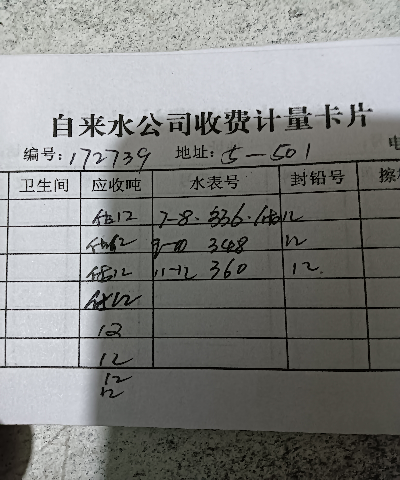 自来水公司收费计量卡片
编号:172739 地址:5-501 电
卫生间 应收吨 水表号 封铅号 擦
估12 7-8. 336. 估12
估12 9-10 348 12
估12 11-12 360 12.
估12
12
12
12
12